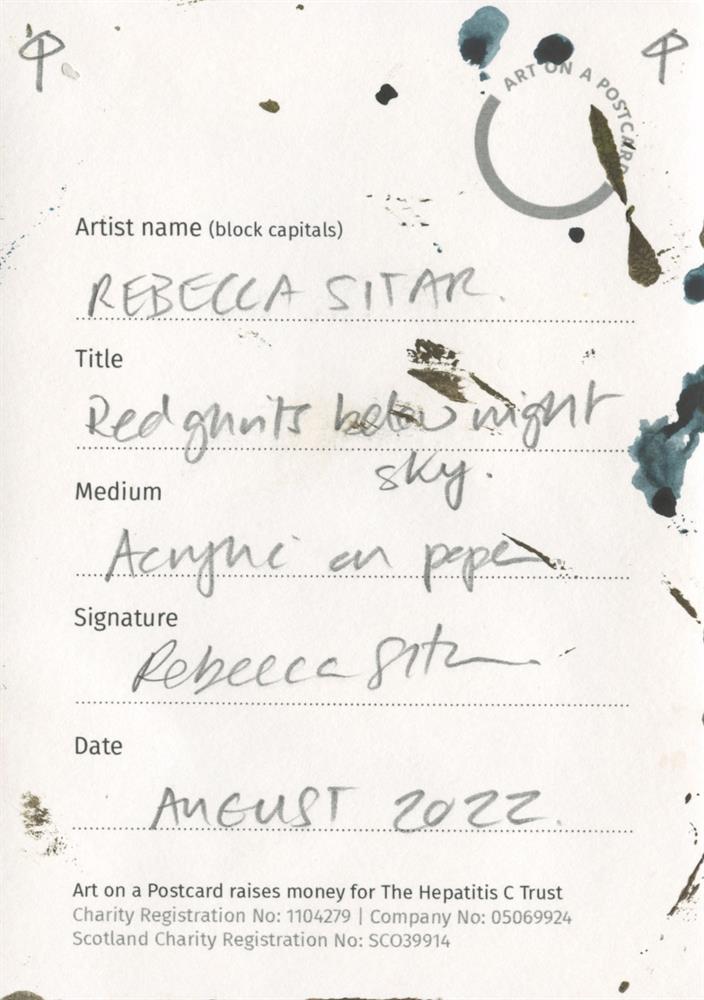 ART ON A POSTCARD
Artist name (block capitals)
REBECCA SITAR.
Title
Red below night
sky.
Medium
Acrylic on paper
Signature
Rebecca Sitar
Date
AUGUST 2022.
Art on a Postcard raises money for The Hepatitis C Trust
Charity Registration No: 1104279 | Company No: 05069924
Scotland Charity Registration No: SCO39914